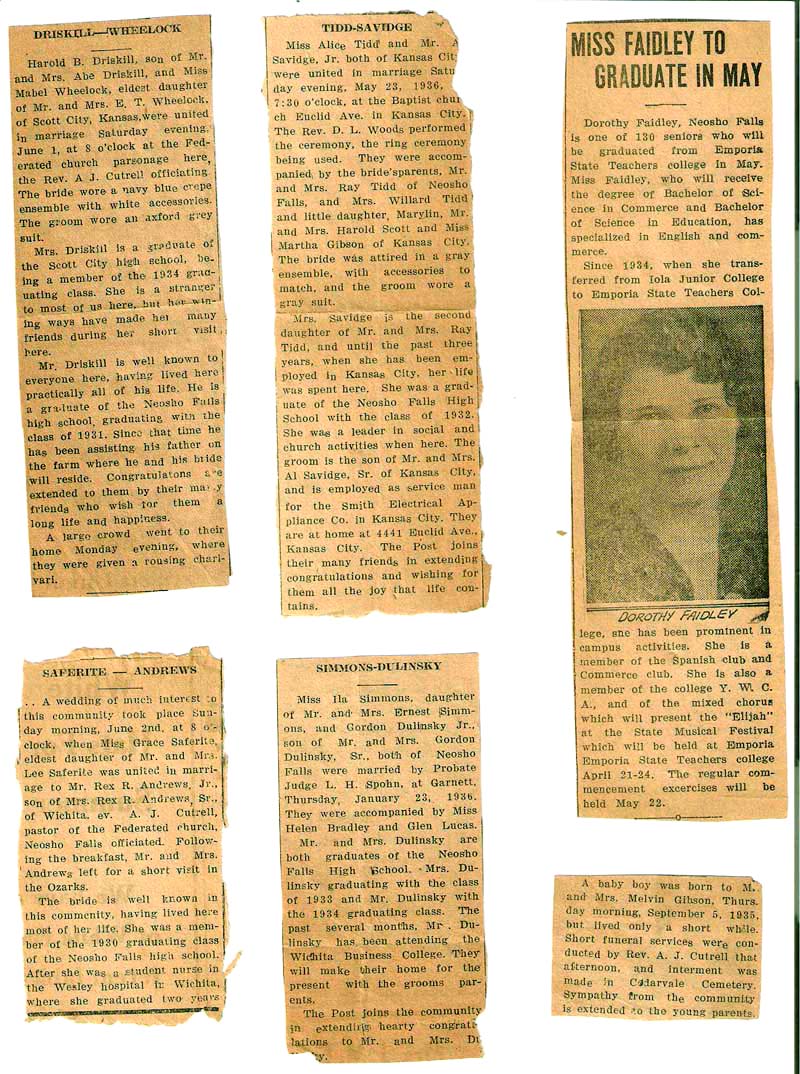 DRISKILL—WHEELOCK
Harold B. Driskill, son of Mr.
and Mrs. Abe Driskill, and Miss
Mabel Wheelock, eldest daughter
of Mr. and Mrs. E. T. Wheelock,
of Scott City, Kansas,were united
in marriage Saturday evening,
June 1, at 8 o'clock at the Fed-
erated church parsonage here,
the Rev. A J. Cutrell officiating.
The bride wore a navy blue crepe
ensemble with white accessories.
The groom wore an axford grey
suit.
Mrs. Driskill is a graduate of
the Scott City high school, be-
ing a member of the 1934 grad-
uating class. She is a stranger
to most of us here, but her win-
ing ways have made her many
friends during her short visit
here.
Mr. Driskill is well known to
everyone here, having lived here
practically all of his life. He is
a graduate of the Neosho Falls
high school, graduating with the
class of 1931. Since that time he
has been assisting his father on
the farm where he and his bride
will reside. Congratulatons are
extended to them by their many
friends who wish for them a
long life and happiness.
A large crowd went to their
home Monday evening, where
they were given a rousing chari-
vari.
SAFERITE — ANDREWS
. . A wedding of much interest to
this community took place Sun-
day morning, June 2nd, at 8 o'
clock, when Miss Grace Saferite,
eldest daughter of Mr. and Mrs.
Lee Saferite was united in marri-
age to Mr. Rex R. Andrews, Jr.,
son of Mrs. Rex R. Andrews, Sr.,
of Wichita, ev. A. J. Cutrell,
pastor of the Federated church,
Neosho Falls officiated. Follow-
ing the breakfast, Mr. and Mrs.
Andrews left for a short visit in
the Ozarks.
The bride is well known in
this commenity, having lived here
most of her life. She was a mem-
ber of the 1930 graduating class
of the Neosho Falls high school.
After she was a student nurse in
the Wesley hospital in Wichita,
where she graduated two years
TIDD-SAVIDGE
Miss Alice Tidd and Mr. A
Savidge, Jr. both of Kansas City
were united in marriage Satu
day evening, May 23, 1936,
7:30 o'clock, at the Baptist chur
ch Euclid Ave. in Kansas City.
The Rev. D. L. Woods performed
the ceremony, the ring ceremony
being used. They were accom-
panied, by the bride'sparents, Mr.
and Mrs. Ray Tidd of Neosho
Falls, and Mrs. Willard Tidd
and little daughter, Marylin, Mr.
and Mrs. Harold Scott and Miss
Martha Gibson of Kansas City.
The bride was attired in a gray
ensemble, with accessories to
match, and the groom wore a
gray suit.
Mrs. Savidge is the second
daughter of Mr. and Mrs. Ray
Tidd, and until the past three
years, when she has been em-
ployed in Kansas City, her life
was spent here. She was a grad-
uate of the Neosho Falls High
School with the class of 1932.
She was a leader in social and
church activities when here. The
groom is the son of Mr. and Mrs.
Al Savidge, Sr. of Kansas City,
and is employed as service man
for the Smith Electrical Ap-
pliance Co. in Kansas City. They
are at home at 4441 Euclid Ave.,
Kansas City. The Post joins
their many friends in extending
congratulations and wishing for
them all the joy that life con-
tains.
SIMMONS-DULINSKY
Miss Ila Simmons, daughter
of Mr. and Mrs. Ernest Simm-
ons, and Gordon Dulinsky Jr.,
son of Mr. and Mrs. Gordon
Dulinsky, Sr., both of Neosho
Falls were married by Probate
Judge L. H. Spohn, at Garnett,
Thursday, January 23, 1936.
They were accompanied by Miss
Helen Bradley and Glen Lucas.
Mr. and Mrs. Dulinsky are
both graduates of the Neosho
Falls High School. Mrs. Du-
linsky graduating with the class
of 1933 and Mr. Dulinsky with
the 1934 graduating class. The
past several months, Mr. Du-
linsky has been attending the
Wichita Business College. They
will make their home for the
present with the grooms par-
ents.
The Post joins the community
in extending hearty congratu-
lations to Mr. and Mrs. Du
MISS FAIDLEY TO
GRADUATE IN MAY
Dorothy Faidley, Neosho Falls
is one of 130 seniors who will
be graduated from Emporia
State Teachers college in May.
Miss Faidley, who will receive
the degree of Bachelor of Sci-
ence in Commerce and Bachelor
of Science in Education, has
specialized in English and com-
merce.
Since 1934, when she trans-
ferred from Iola Junior College
to Emporia State Teachers Col-
DOROTHY FAIDLEY
lege, sne has been prominent in
campus activities. She is a
member of the Spanish club and
Commerce club. She is also a
member of the college Y. W. C.
A., and of the mixed chorus
which will present the "Elijah"
at the State Musical Festival
which will be held at Emporia
Emporia State Teachers college
April 21-24. The regular com-
mencement excercises will be
held May 22.
A baby boy was born to M.
and Mrs. Melvin Gibson, Thurs.
day morning, September 5, 1935,
but lived only a short while.
Short funeral services were con-
ducted by Rev. A. J. Cutrell that
afternoon, and interment was
made in Cedarvale Cemetery.
Sympathy from the community
is extended to the young parents.